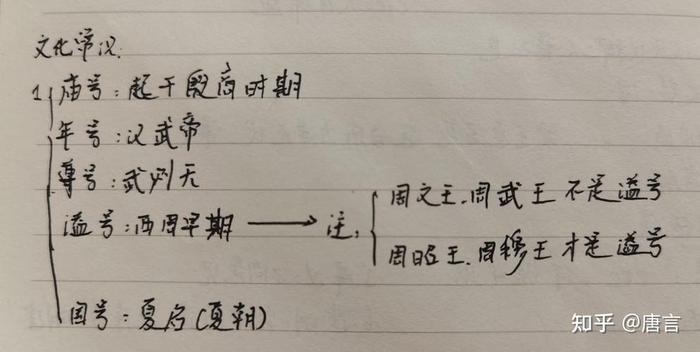 文化常识:
1 庙号:起于殷商时期
年号:汉武帝
尊号:武则天
谥号:西周早期 → 注,
周文王.周武王 不是谥号
周昭王.周穆王 才是谥号
国号:夏启(夏朝)
知乎 @唐言